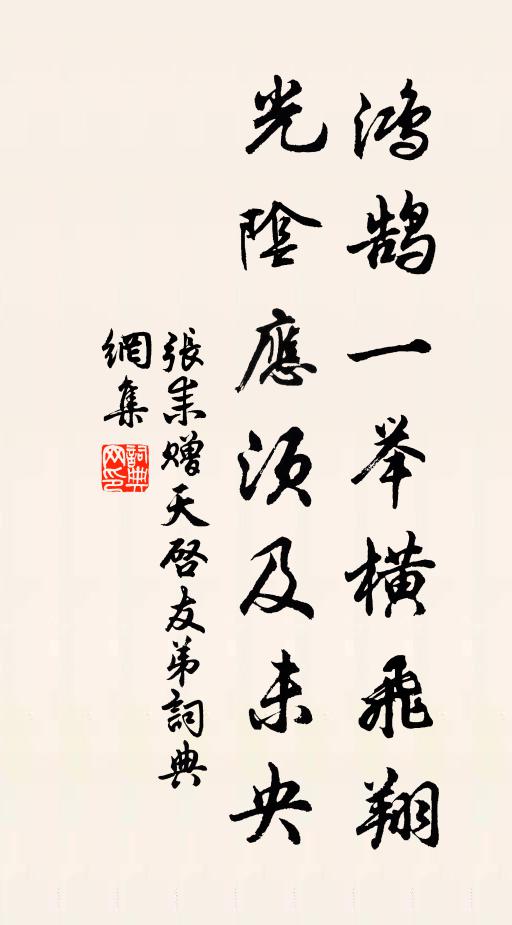 鴻鹄一举橫飛翔
光陰應须及未央
張耒赠天啓友弟詞典
網集
詞典网印